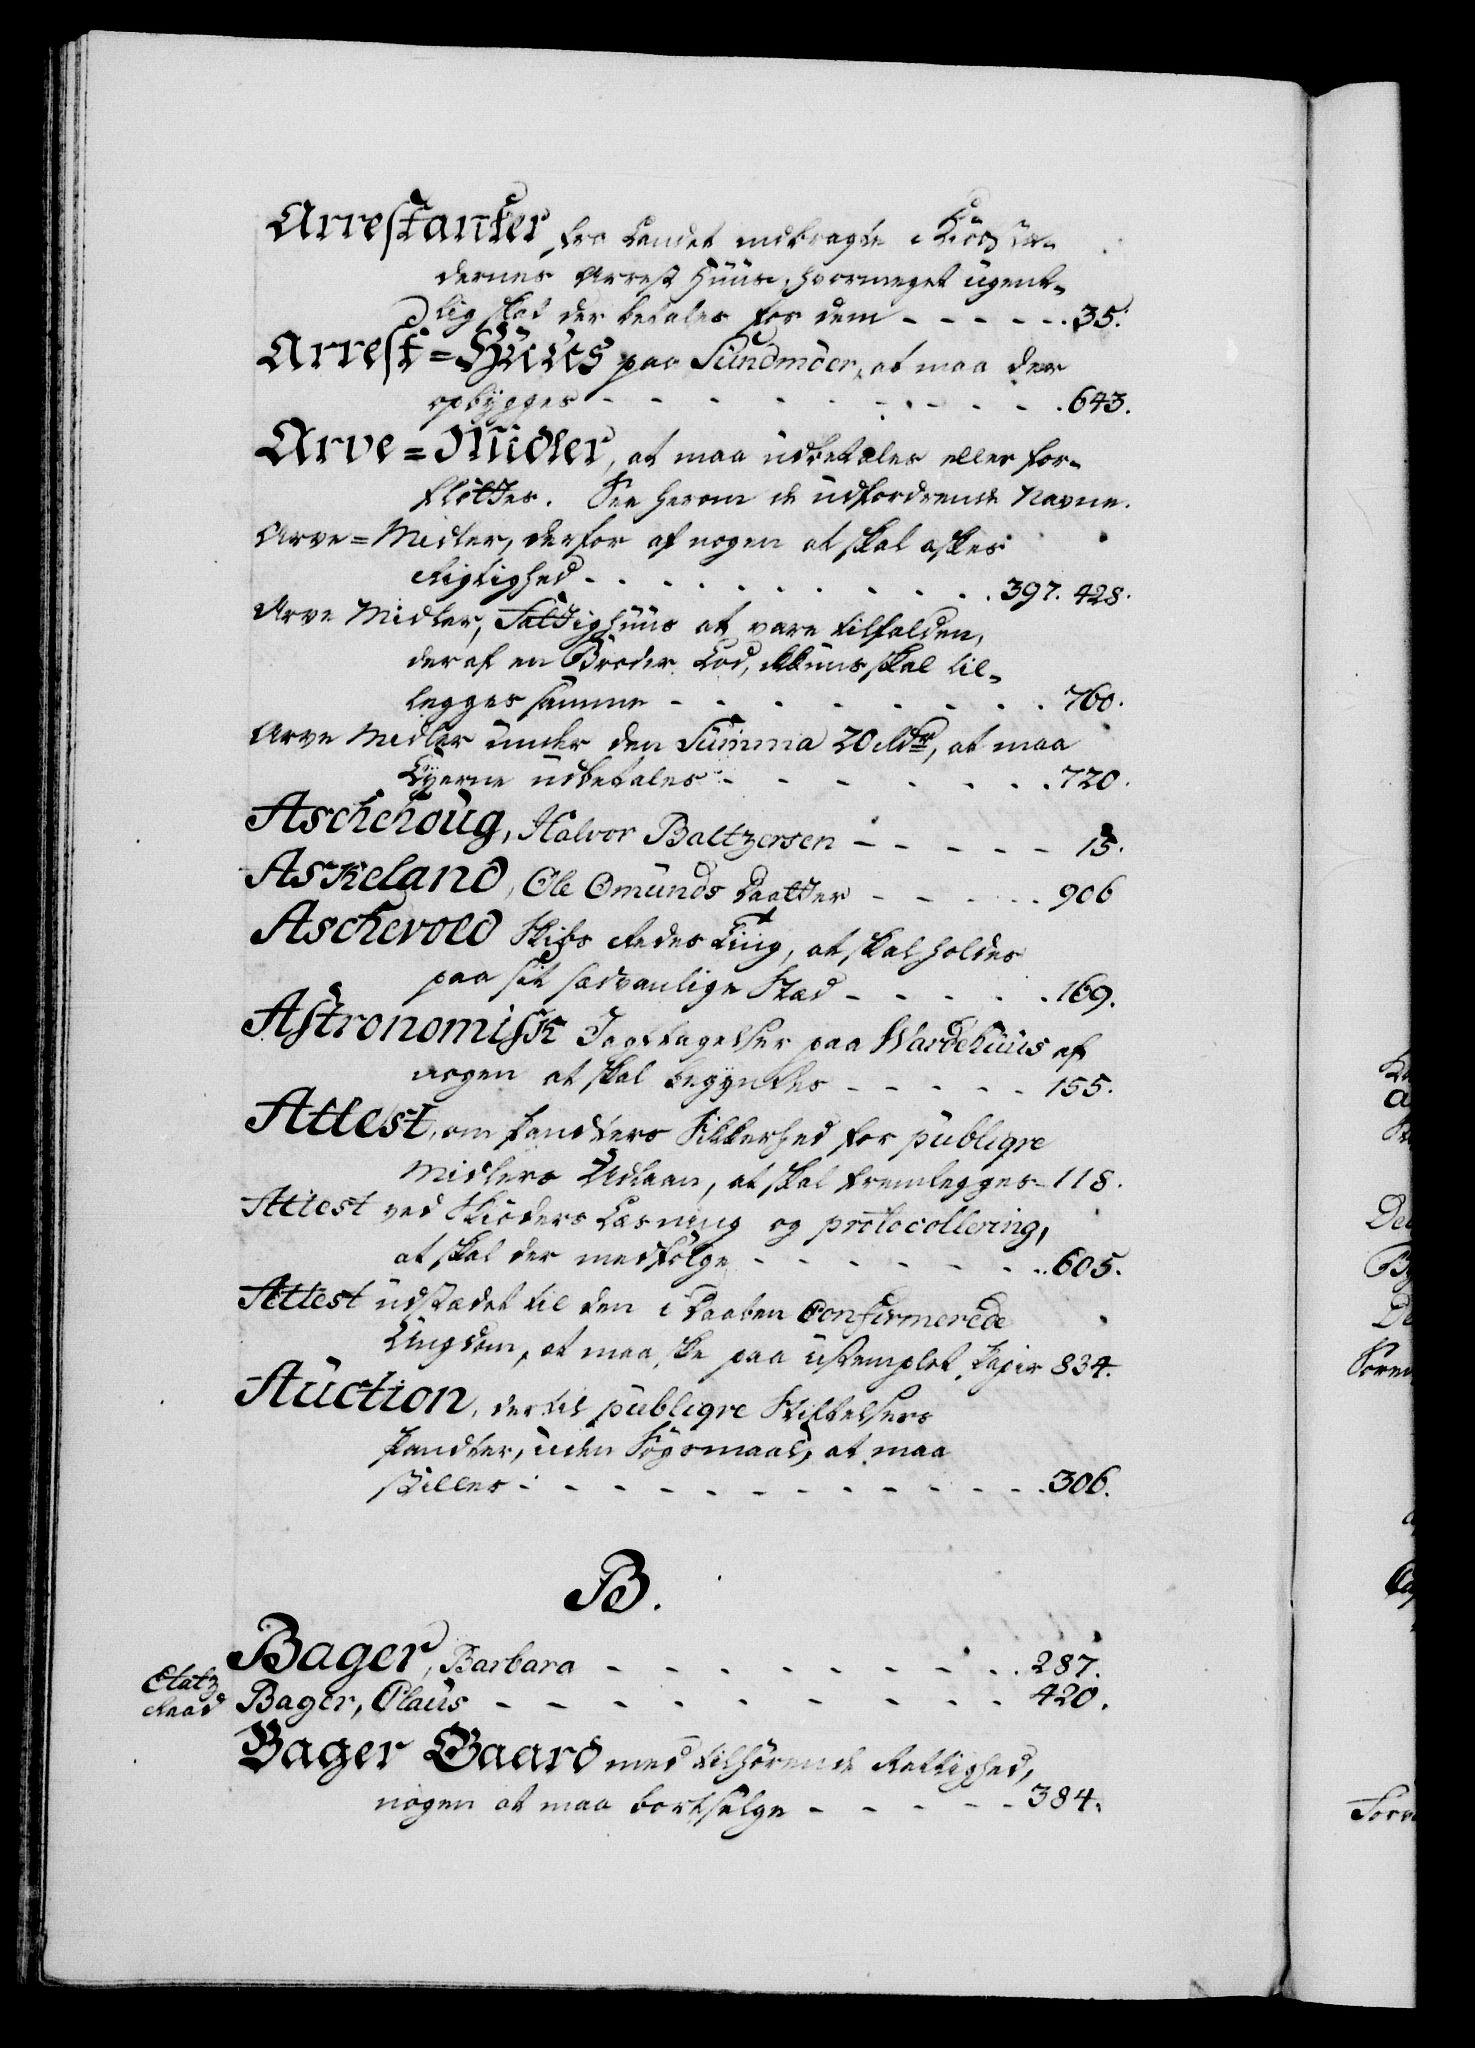 Arrestanter fra Landet indbragte i Kiöbstæ-
dernes Arrest Huus, hvormeget ugent-
lig skal der betales for dem - - - - - - 35.
Arrest=Huus paa Sundmöer, at maa der
opbygges - - - - - - - - - 643.
Arve=Midler, at maa udbetales eller for-
flöttes. See herom de udfordrende Navne.
Arve=Midler, derfor af nogen at skal askes
Rigtighed - - - - - - - - 397. 428.
Arve Midler, Fattighuus at være tilfalden,
deraf en Broder Lod, ikkuns skal til-
legges samme - - - - - - - - 760.
Arve Midler under den Summa 20 Rdr, at maa
Eyerne udbetales - - - - - - - 720.
Aschehoug, Halvor Baltzersen - - - - - 15.
Askeland, Ole Omunds Daatter - - - - - 906
Aschevold Skibs Redes Ting, at skal holdes
paa sit sædvanlige Stæd - - - - - 169.
Astronomisk Iagttagelser paa Wardehuus af
nogen at skal begyndes - - - - - 155.
Attest, om Pandters Sikkerhed for publiqve
Midlers Udlaan, at skal fremlegges - 118.
Attest ved Skiöders Læsning og protocollering,
at skal der medfölge - - - - - - - 605.
Attest udstædet til den i Daaben Confirmerede
Ungdom, at maa ske paa ustemplet Papir 834.
Auction, dertil publiqve Stiftelsers
Pandter, uden Sögsmaal, at maa
stilles - - - - - - - - - - - 306.
B.
Bager, Barbara - - - - - - - - - 287.
Etatz
Raad Bager, Claus - - - - - - - - - - 420.
Bager Gaard med tilhörende Rettighed,
nogen at maa bortselge - - - - - 384.